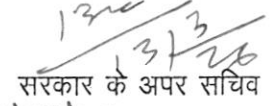 13/3/26
सरकार के अपर सचिव